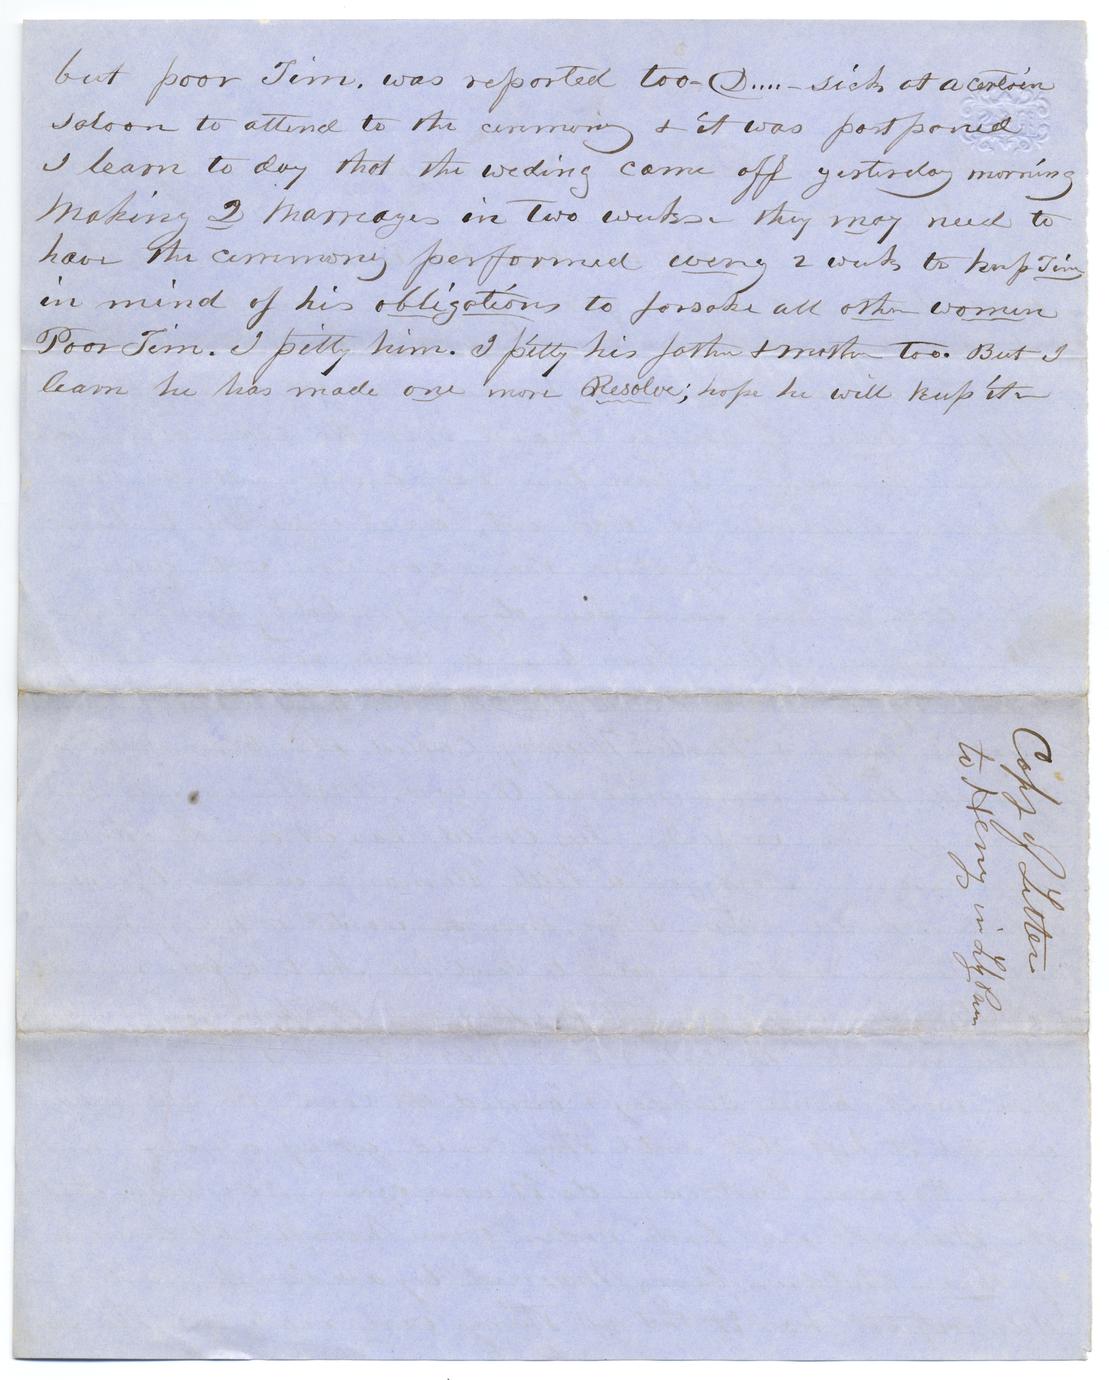 but poor Tim. was reported too-D....- sick at a certain
saloon to attend to the ceremony & it was postponed
I learn to day that the weding came off yesterday morning
Making 2 Marreages in Two weeks - they may need to
have the ceremony performed every 2 weeks to keep Tim
in mind of his obligations to forsake all other women
Poor Tim. I pitty him. I pitty his father & mother too. But I
learn he has made one more Resolve; hope he will keep it -
Copy of Letter
to Henry in